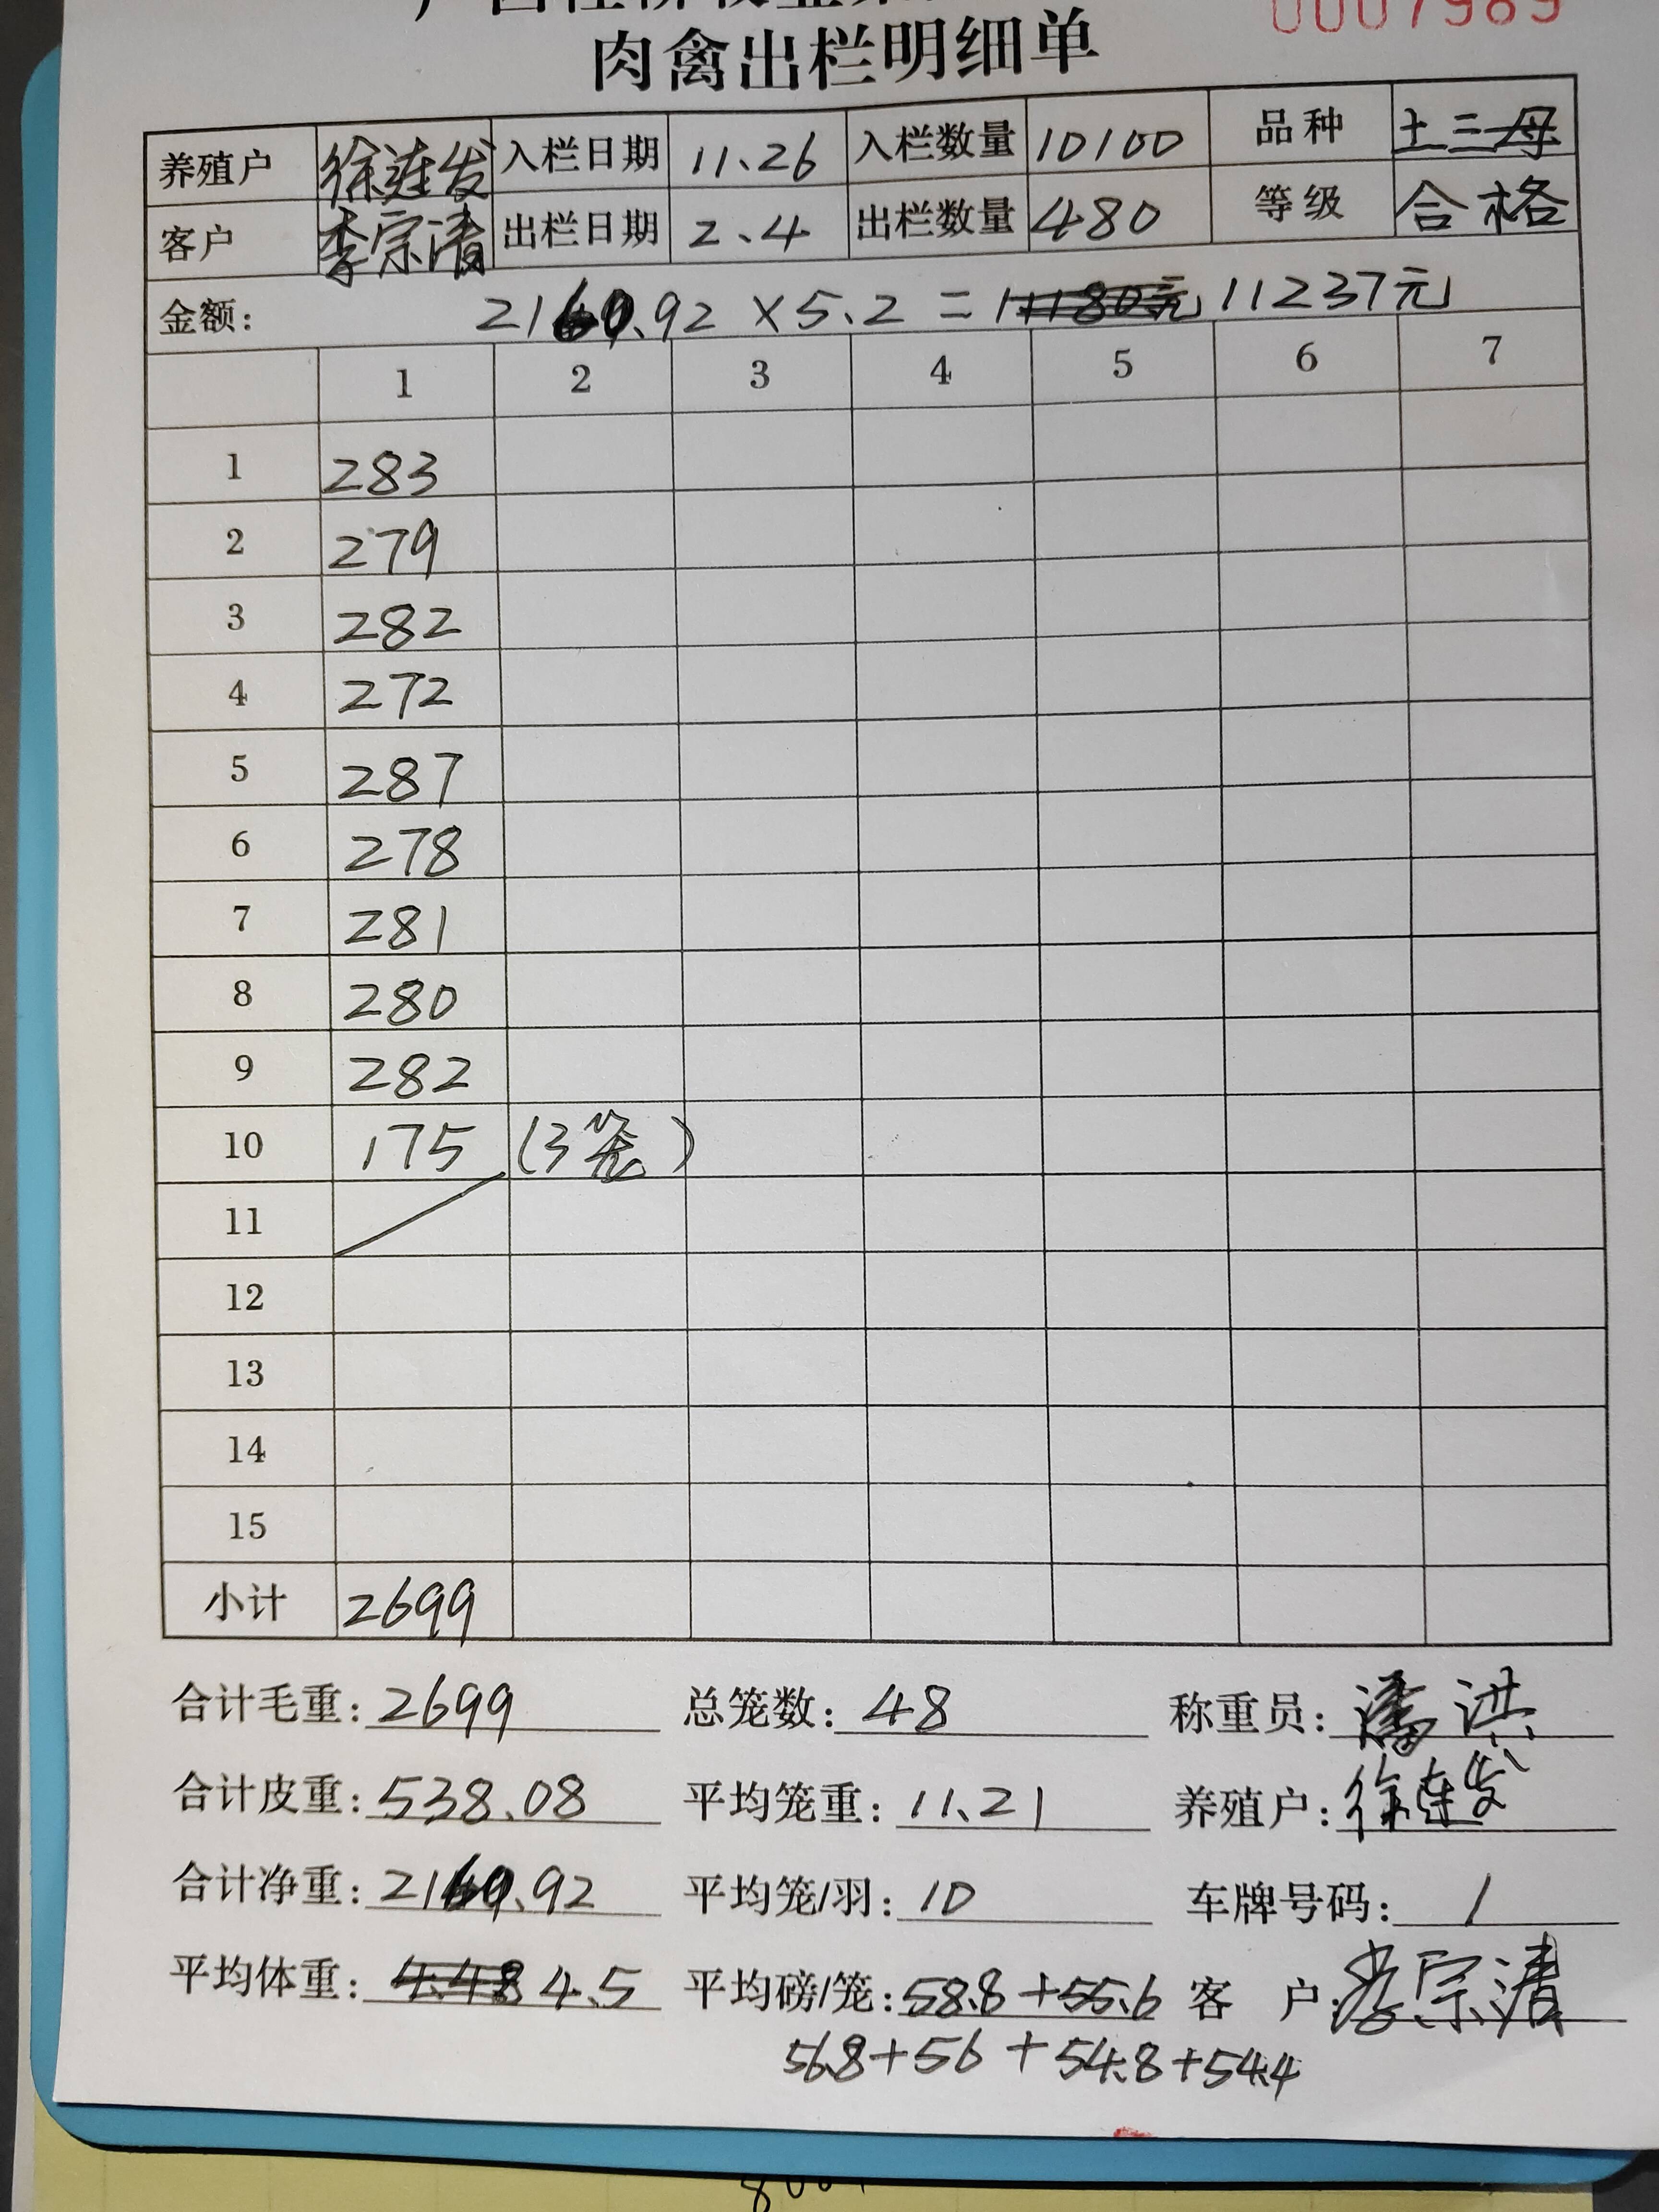 0007989
肉禽出栏明细单
养殖户 徐连发 入栏日期 11.26 入栏数量 10100 品种 土三母
客户 李宗清 出栏日期 2.4 出栏数量 480 等级 合格
金额: 2160.92 × 5.2 = 11180元 11237元
1 2 3 4 5 6 7
1 283
2 279
3 282
4 272
5 287
6 278
7 281
8 280
9 282
10 175 (3笼)
11
12
13
14
15
小计 2699
合计毛重: 2699 总笼数: 48 称重员: 潘洪
合计皮重: 538.08 平均笼重: 11.21 养殖户: 徐连发
合计净重: 2160.92 平均笼/羽: 10 车牌号码: /
平均体重: 4.48 4.5 平均磅/笼: 58.8+55.6 客 户: 李宗清
56.8+56+54.8+54.4